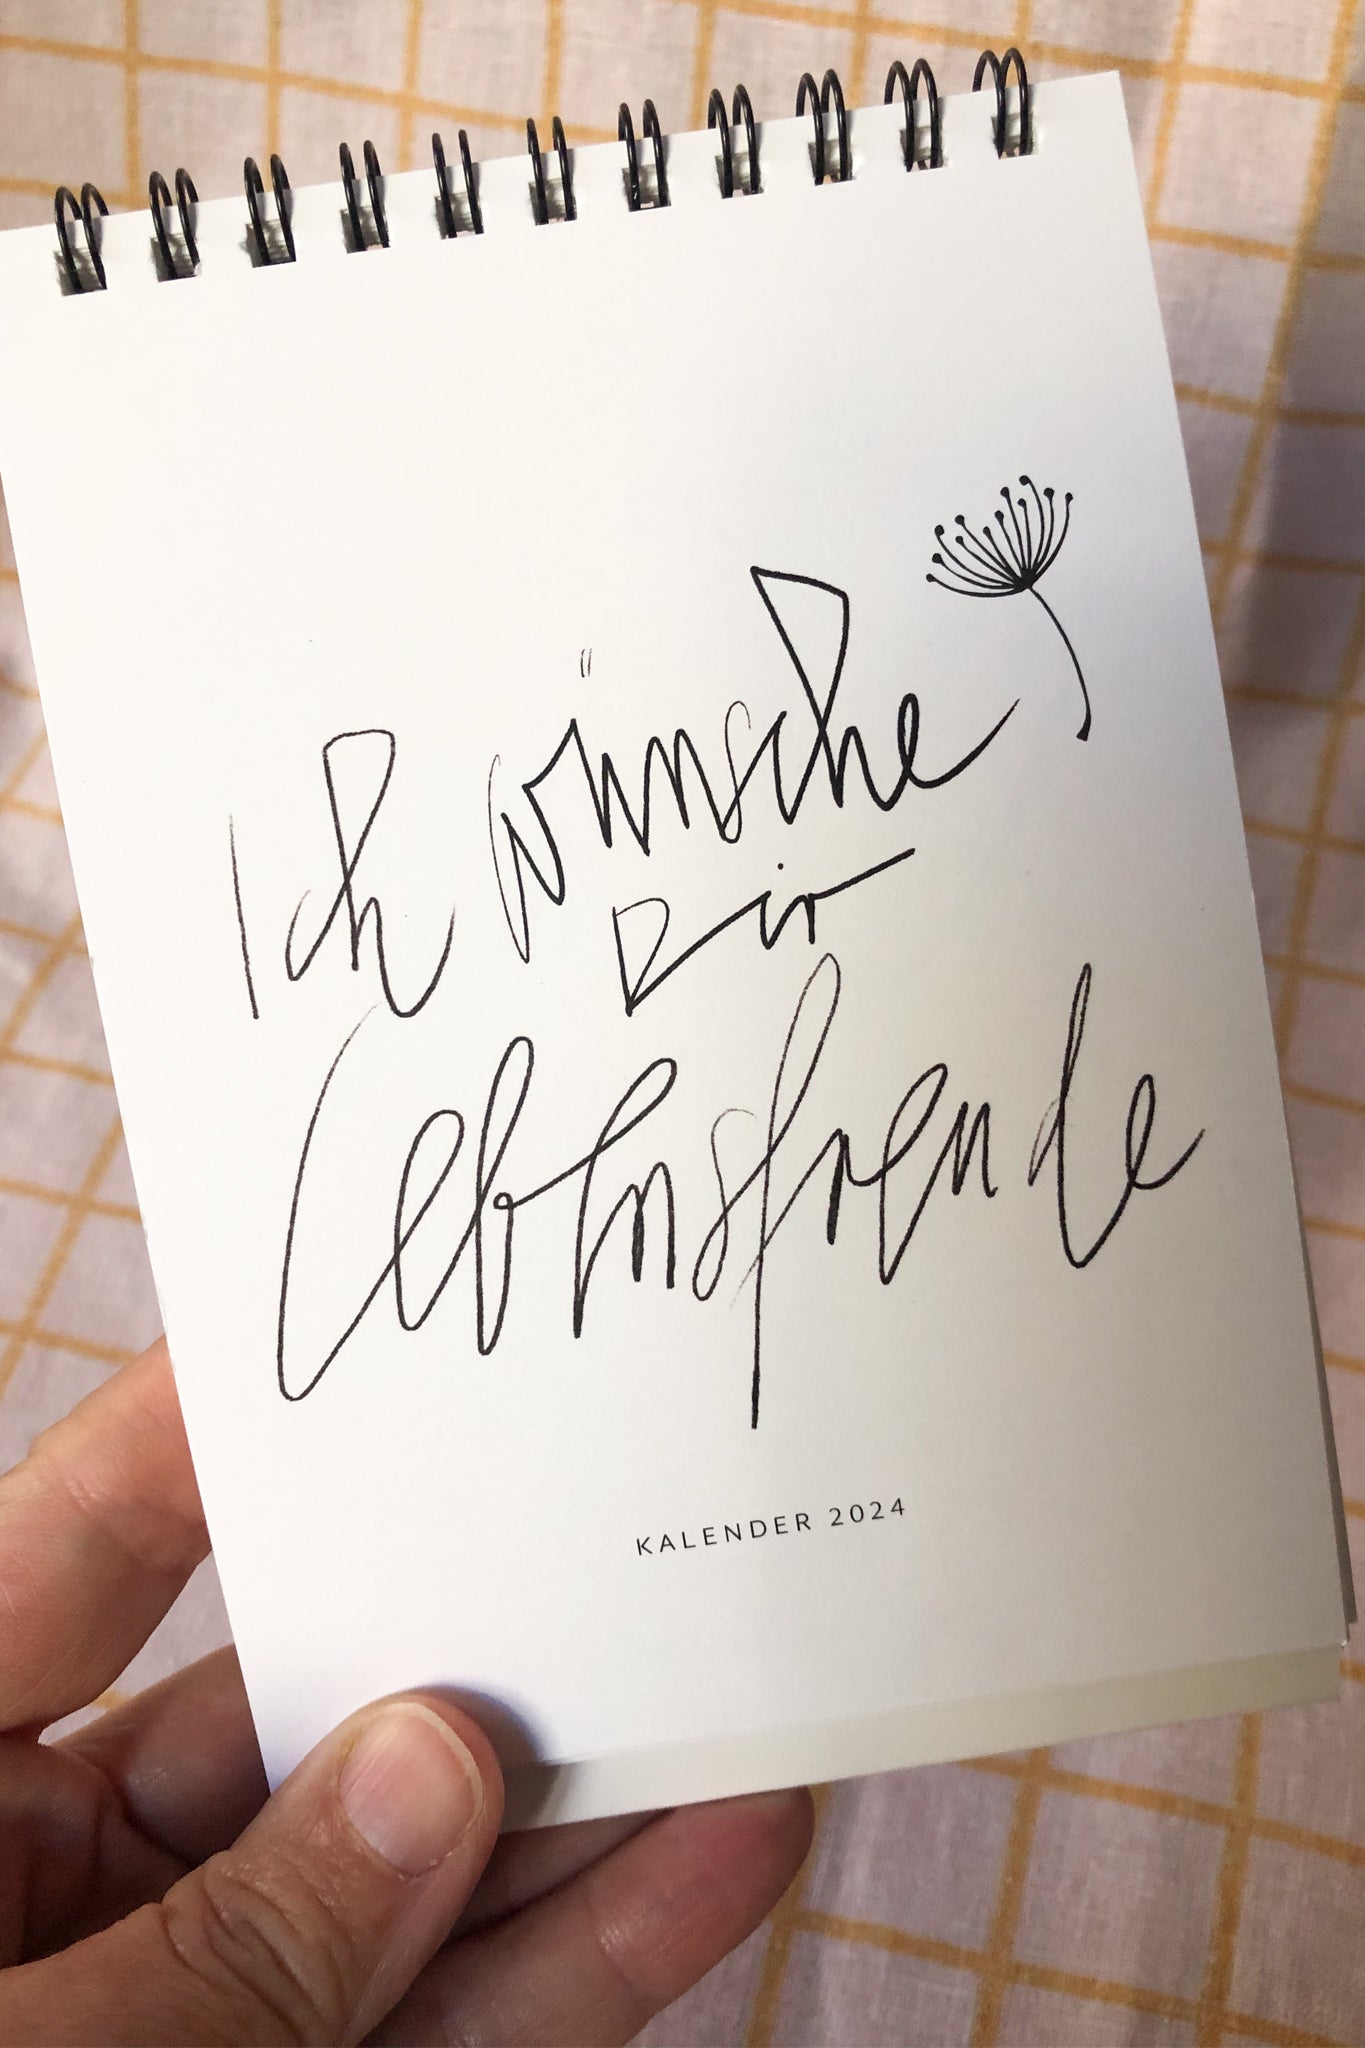 Ich wünsche
Dir
Lebensfreude
KALENDER 2024